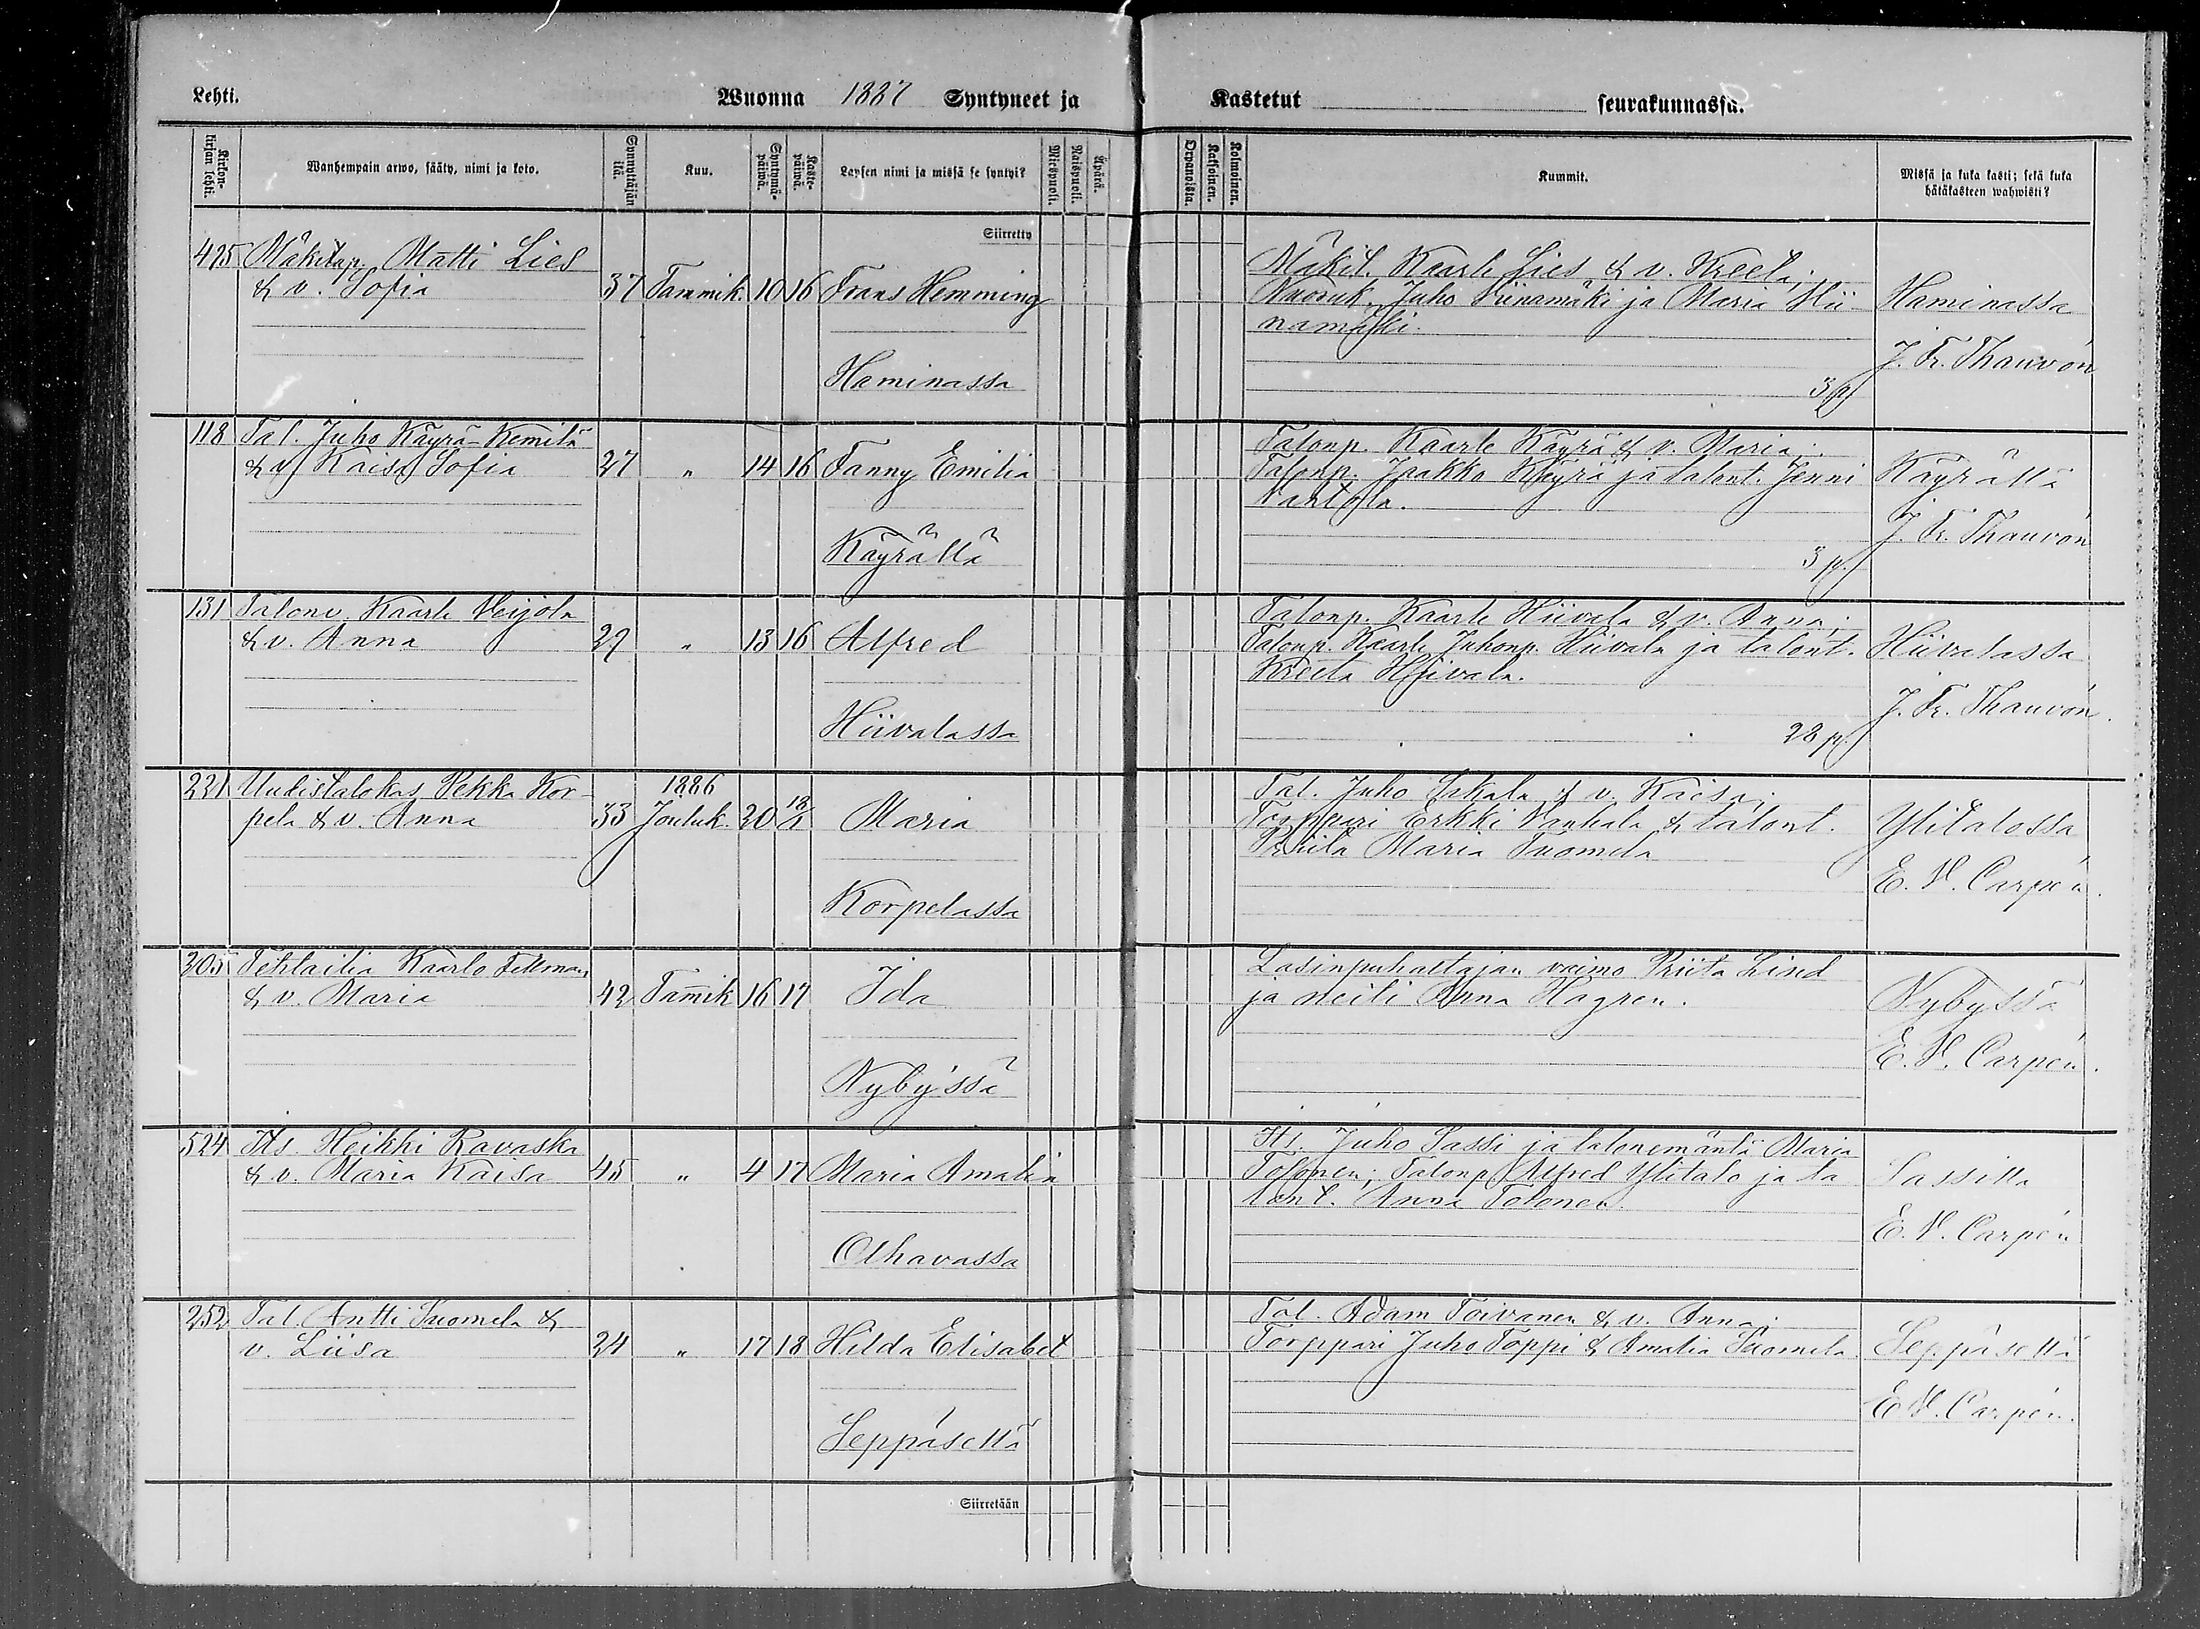 Lehti.
Wuonna 1887 Syntyneet ja
Kastetut seurakunnassa.
Kirkonkirjan lehti.
Wanhempain arwo, sääty, nimi ja koto.
Synnyttäjän ikä.
Kuu.
Syntymäpäivä.
Kastepäivä.
Lapsen nimi ja missä se syntyi?
Miespuoli.
Naispuoli.
Äpärä.
Orvanoista.
Kaksoinen.
Kolmoinen.
Kummit.
Missä ja kuka kasti; sekä kuka hätäkasteen wahwisti?
Siirretty
Mäkitup. Matti Lies
& v. Sofia 37 Tammik. 10 16 Frans Hemming
Haminassa
Mäkit. Kaarle Lies & v. Kreeta;
Nuoruk. Juho Hiinamäki ja Maria Hii-
namäki.
3 p
Haminassa
J. Fr. Thauvón
118 Tal. Juho Käyrä-Kemilä
& v Kaisa Sofia 27 " 14 16 Fanny Emilia
Käyrällä
Talonp. Kaarle Käyrä & v. Maria;
Talonp. Jaakko Käyrä ja talont. Jenni
3 p.
Käyrällä
J. Fr. Thauvón
131 Talonv. Kaarle Veijola
& v. Anna 29 " 13 16 Alfred
Hiivalassa
Talonp. Kaarle Hiivala & v. Anna;
Talonp. Kaarle Juhonp. Hiivala ja talont.
Kreeta Hiivala.
28 p.
Hiivalassa
J. Fr. Thauvón.
221 Uudistalokas Pekka Kor-
pela & v. Anna 33 1886 Jouluk. 20 18/1 Maria
Korpelassa
Tal. Juho Iskala & v. Kaisa;
Torppari Erkki Vanhala & talont.
Priita Maria Suomela
Ylitalossa
E. V. Carpén.
205 Tehtailia Kaarlo Fellman
& v. Maria 42 Tamik 16 17 Ida
Nybyssä
Lasinpuhaltajan vaimo Priita Lind
ja neiti Anna Hagren.
Nybyssä
E. V. Carpén.
524 Its. Heikki Ravaska
& v. Maria Kaisa 45 " 4 17 Maria Amalia
Olhavassa
Its. Juho Sassi ja talonemäntä Maria
Tolonen; Talonp. Alfred Ylitalo ja ta
lont. Anna Tolonen.
Sassilla
E. V. Carpén
252 Tal. Antti Suomela &
v. Liisa 24 " 17 18 Hilda Elisabet
Seppäsellä
Tal. Adam Toivanen & v. Anna;
Torppari Juho Toppi & Amalia Suomela
Seppäsellä
E. V. Carpén.
Siirretään